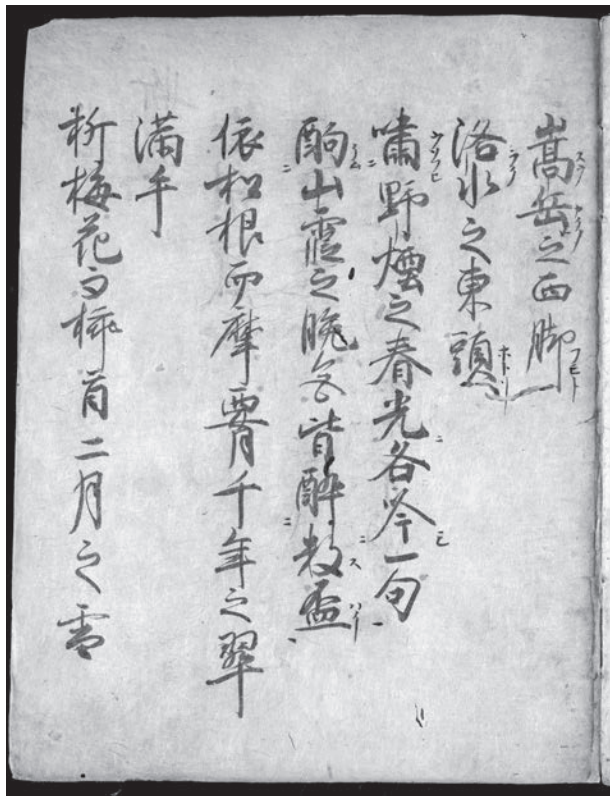 嵩岳之西脚
洛水之東頭
嘯野煙之春光各吟一句
酌山霞之晩色皆酔数盃
依松根而摩腰千年之翠
満手
折梅花而挿首二月之雪